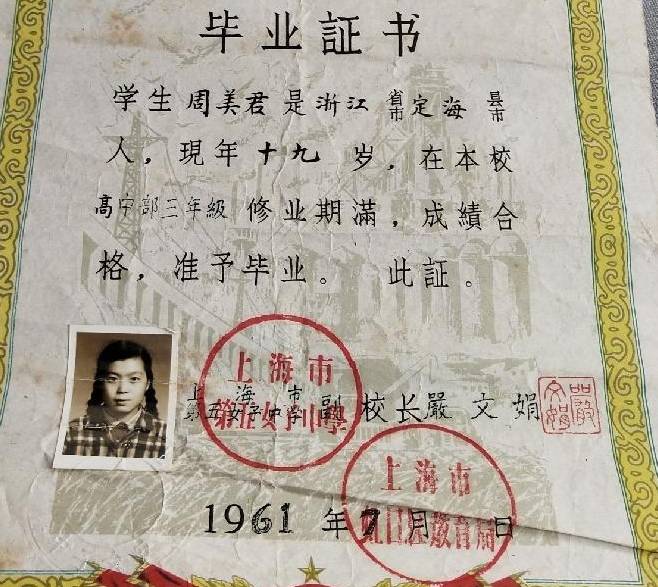 毕业証书
学生 周美君 是 浙江 省市 定海 县市
人，現年 十九 岁，在本校
高中部三年級 修业期滿，成績合
格，准予毕业。 此証。
上海市
第五女子中学 副校长 嚴文娟
上海市
第五女子中學
嚴文娟
1961 年 7 月 日
上海市
虹口区教育局